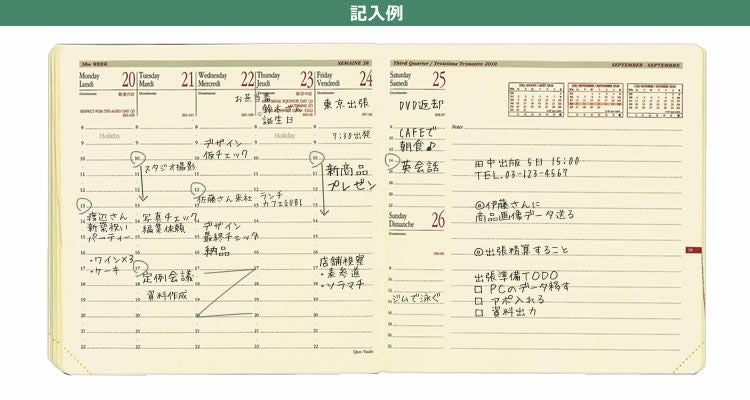 記入例
38th WEEK
SEMAINE 38
Monday
Lundi
20
RESPECT FOR THE AGED DAY (J)
Holiday
渡辺さん
新築祝い
パーティー
・ワイン×3
・ケーキ
Tuesday
Mardi
21
スタジオ撮影
写真チェック
編集依頼
定例会議
資料作成
Wednesday
Mercredi
22
お弁当箱
デザイン
仮チェック
佐藤さん来社
デザイン
最終チェック
納品
Thursday
Jeudi
23
誕生日
Holiday
ランチ
Friday
Vendredi
24
東京出張
7:30出発
新商品
プレゼン
店舗視察
・表参道
・ソラマチ
Quo Vadis
Third Quarter / Troisième Trimestre 2010
SEPTEMBER - SEPTEMBRE
Saturday
Samedi
25
DVD返却
CAFEで
朝食♪
英会話
Sunday
Dimanche
26
ジムで泳ぐ
Notes
田中出版 5日 15:00
TEL.03-123-4567
◎伊藤さんに
商品画像データ送る
◎出張精算すること
出張準備TODO
□ PCのデータ移す
□ アポ入れる
□ 資料出力